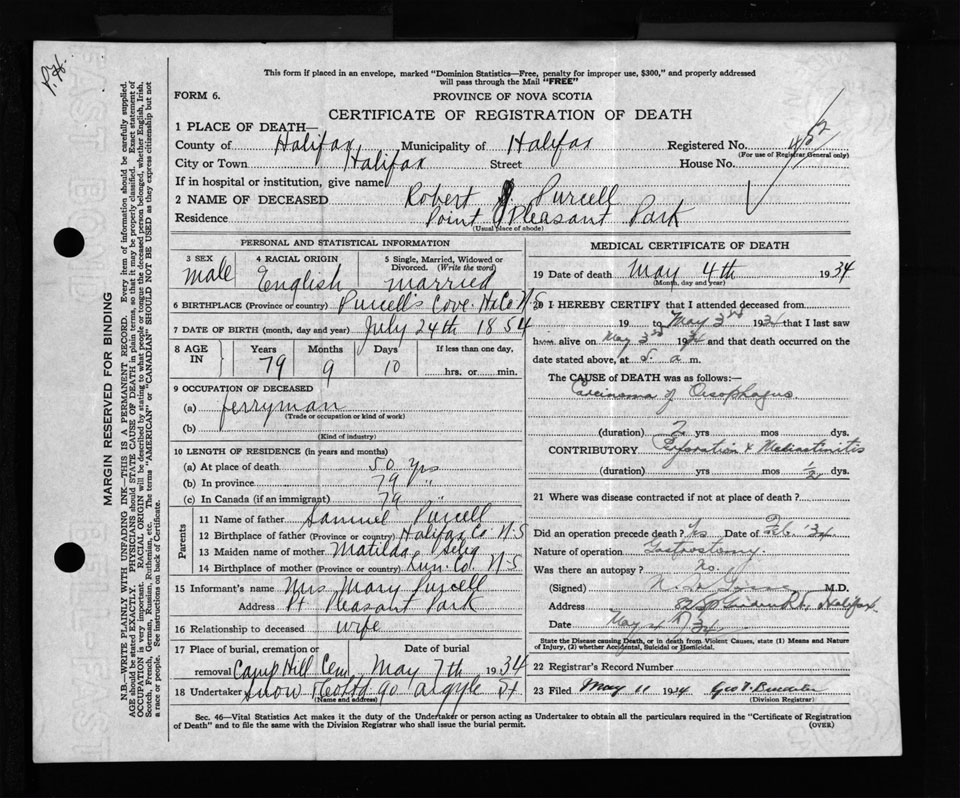 P.H.
This form if placed in an envelope, marked "Dominion Statistics—Free, penalty for improper use, $300," and properly addressed
will pass through the Mail "FREE"
FORM 6.
PROVINCE OF NOVA SCOTIA
CERTIFICATE OF REGISTRATION OF DEATH
1 PLACE OF DEATH—
County of Halifax Municipality of Halifax Registered No. 452
(For use of Registrar General only)
City or Town Halifax Street House No.
If in hospital or institution, give name
2 NAME OF DECEASED Robert J. Purcell
Residence Point Pleasant Park
(Usual place of abode)
PERSONAL AND STATISTICAL INFORMATION
3 SEX Male
4 RACIAL ORIGIN English
5 Single, Married, Widowed or Divorced. (Write the word) married
6 BIRTHPLACE (Province or country) Purcell's Cove. Hx Co N.S
7 DATE OF BIRTH (month, day and year) July 24th 1854
8 AGE IN Years 79 Months 9 Days 10 If less than one day, hrs. or min.
9 OCCUPATION OF DECEASED
(a) ferryman
(Trade or occupation or kind of work)
(b)
(Kind of industry)
10 LENGTH OF RESIDENCE (in years and months)
(a) At place of death 50 Yrs
(b) In province 79 "
(c) In Canada (if an immigrant) 79 "
Parents
11 Name of father Samuel Purcell
12 Birthplace of father (Province or country) Halifax Co N.S
13 Maiden name of mother Matilda Selig
14 Birthplace of mother (Province or country) Lun. Co. N-S
15 Informant's name Mrs Mary Purcell
Address Pt Pleasant Park
16 Relationship to deceased wife
17 Place of burial, cremation or removal Camp Hill Cem Date of burial May 7th 1934
18 Undertaker Snow & Co 90 Argyle St
(Name and address)
MEDICAL CERTIFICATE OF DEATH
19 Date of death May 4th 1934
(Month, day and year)
20 I HEREBY CERTIFY that I attended deceased from
19 to May 3rd 1934 that I last saw
him alive on May 3rd 1934 and that death occurred on the
date stated above, at 5. a m.
The CAUSE OF DEATH was as follows:—
Carcinoma of Oesophagus
(duration) 2 yrs mos dys.
CONTRIBUTORY Perforation & Mediastinitis
(duration) yrs mos 1/2 dys.
21 Where was disease contracted if not at place of death?
Did an operation precede death? Yes Date of Feb. '34
Nature of operation Gastrostomy.
Was there an autopsy? No.
(Signed) M.D.
Address Halifax
Date May 4 34
State the Disease causing Death, or in death from Violent Causes, state (1) Means and Nature
of Injury, (2) whether Accidental, Suicidal or Homicidal.
22 Registrar's Record Number
23 Filed May 11 1934 Geo
(Division Registrar)
Sec. 46—Vital Statistics Act makes it the duty of the Undertaker or person acting as Undertaker to obtain all the particulars required in the "Certificate of Registration
of Death" and to file the same with the Division Registrar who shall issue the burial permit.
(OVER)
MARGIN RESERVED FOR BINDING
N.B.—WRITE PLAINLY WITH UNFADING INK—THIS IS A PERMANENT RECORD. Every item of information should be carefully supplied.
AGE should be stated EXACTLY. PHYSICIANS should STATE CAUSE OF DEATH in plain terms, so that it may be properly classified. Exact statement of
OCCUPATION is very important. RACIAL ORIGIN will be described by stating to what people or tongue the deceased person belonged, whether English, Irish,
Scotch, French, German, Russian, Ruthenian, etc. The terms "AMERICAN" or "CANADIAN" SHOULD NOT BE USED as they express citizenship but not
a race or people. See instructions on back of Certificate.